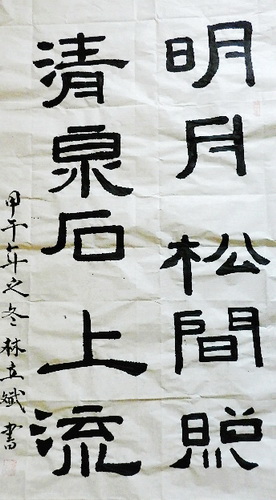 明月松間照
清泉石上流
甲午年之冬林立斌書